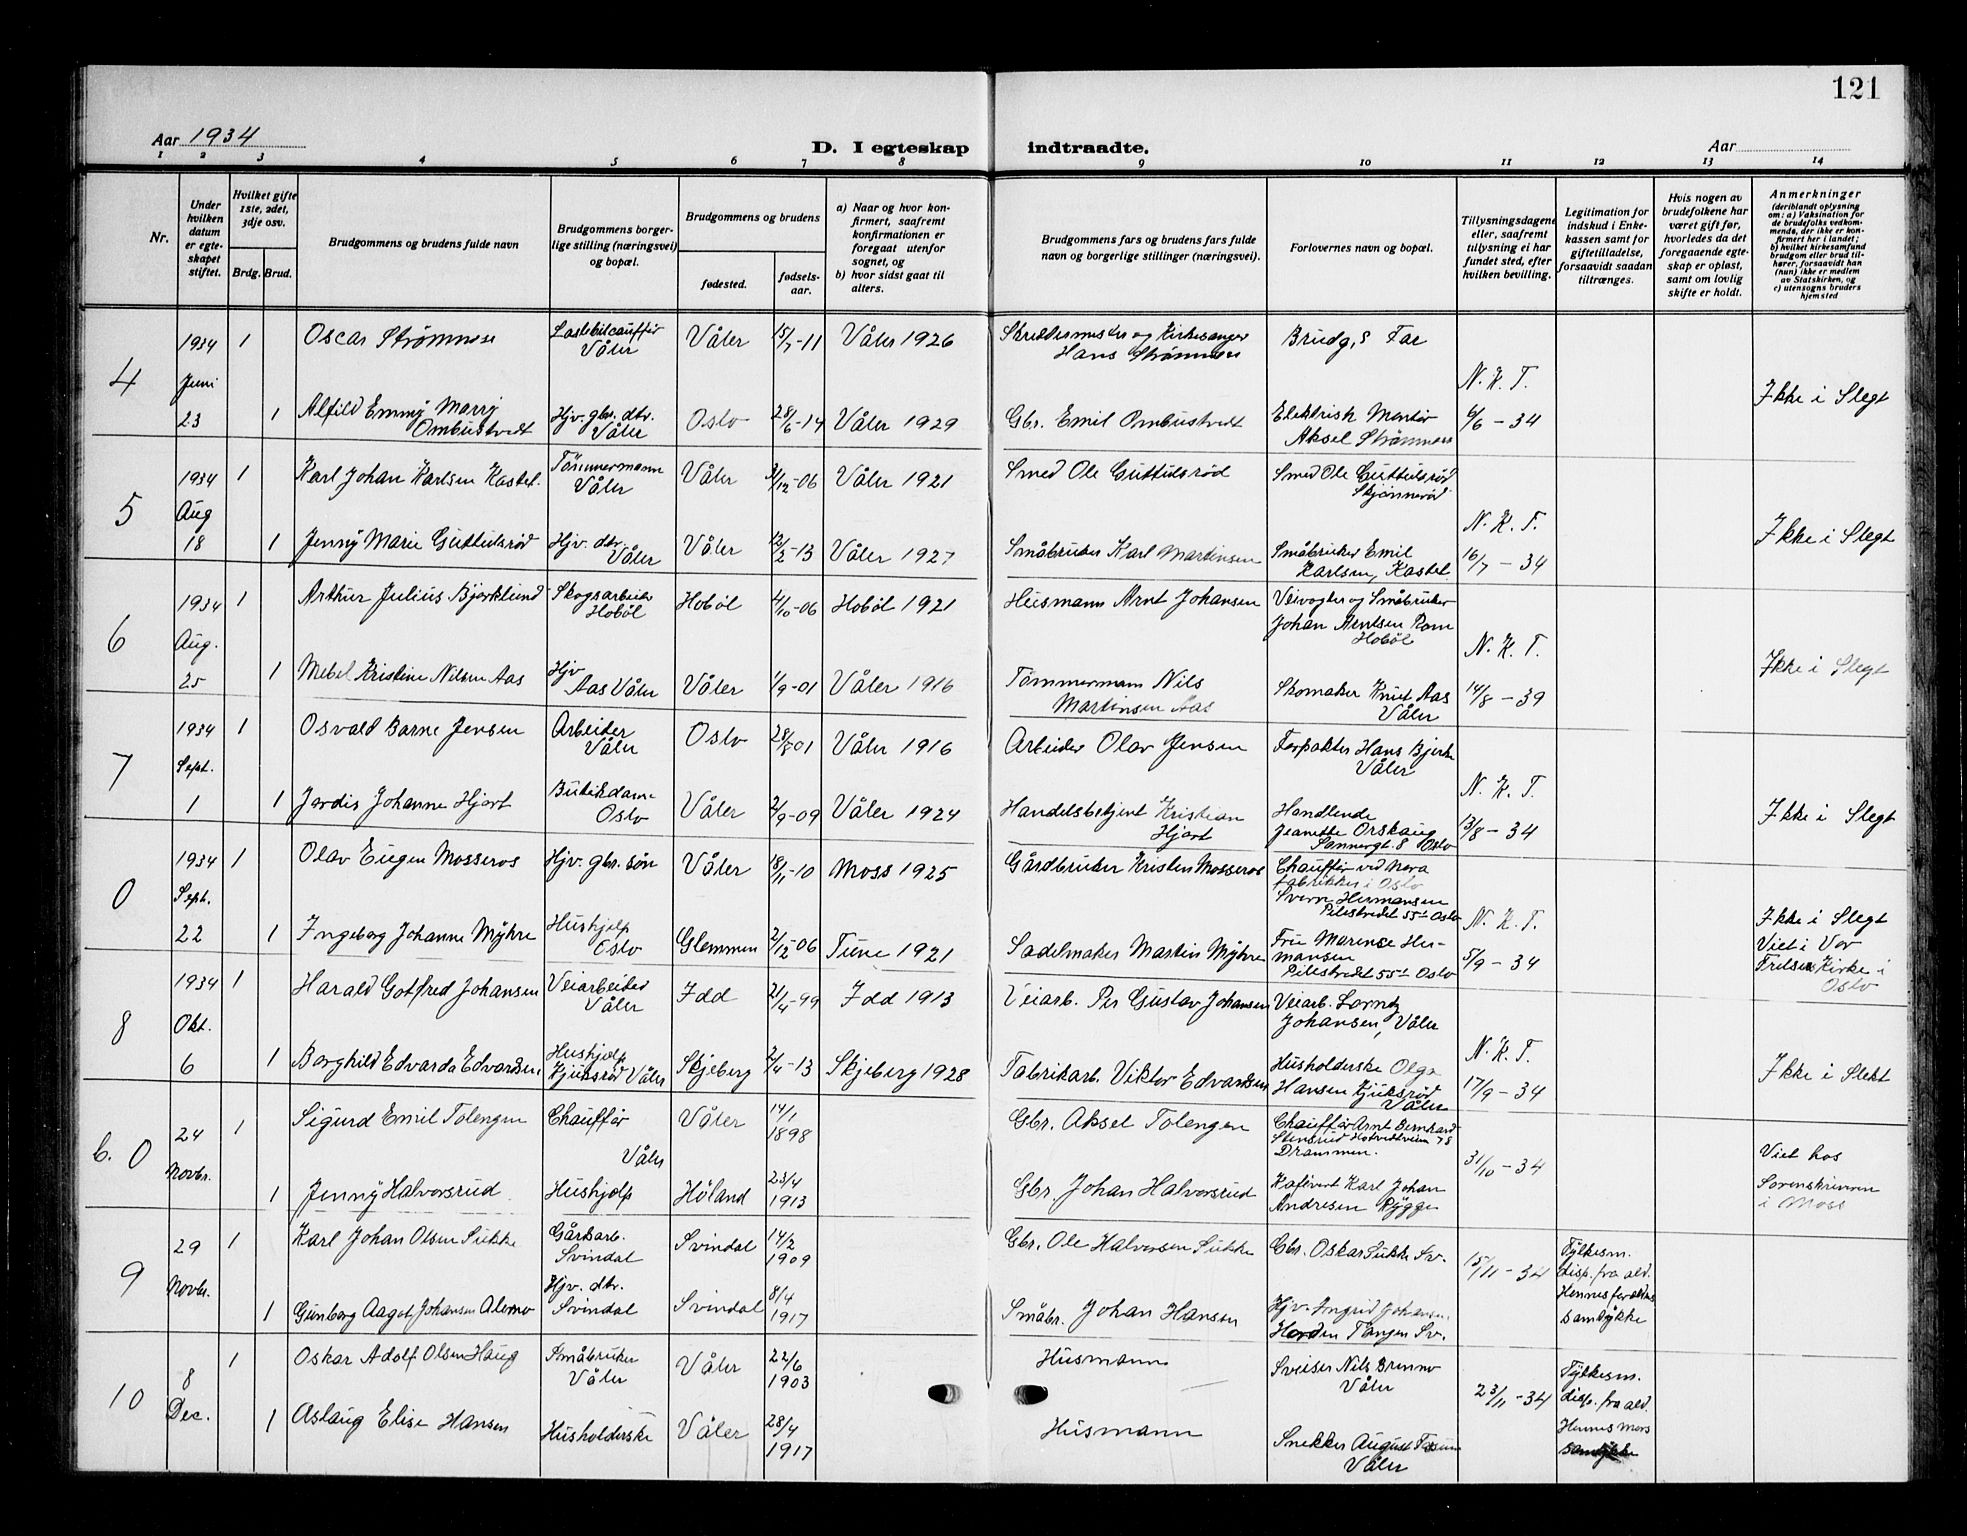 121
Aar 1934
D. I egteskap
indtraadte.
Aar
1 2 3 4 5 6 7 8 9 10 11 12 13 14
Nr.
Under
hvilken
datum
er egte-
skapet
stiftet.
Hvilket gifte
1ste, 2det,
3dje osv.
Brdg. Brud.
Brudgommens og brudens fulde navn
Brudgommens borger-
lige stilling (næringsvei)
og bopæl.
Brudgommens og brudens
fødested.
fødsels-
aar.
a) Naar og hvor kon-
firmert, saafremt
konfirmationen er
foregaat utenfor
sognet, og
b) hvor sidst gaat til
alters.
Brudgommens fars og brudens fars fulde
navn og borgerlige stillinger (næringsvei).
Forlovernes navn og bopæl.
Tillysningsdagene
eller, saafremt
tillysning ei har
fundet sted, efter
hvilken bevilling.
Legitimation for
indskud i Enke-
kassen samt for
giftetilladelse,
forsaavidt saadan
tiltrænges.
Hvis nogen av
brudefolkene har
været gift før,
hvorledes da det
foregaaende egte-
skap er opløst,
samt om lovlig
skifte er holdt.
Anmerkninger
(deriblandt oplysning
om: a) Vaksination for
de brudefolks vedkom-
mende, der ikke er kon-
firmert her i landet;
b) hvilket kirkesamfund
brudgom eller brud til-
hører, forsaavidt han
(hun) ikke er medlem
av Statskirken, og
c) utensogns bruders
hjemsted
4
1934
Juni
23
1 Oscar Strømnes
Lastebilcauffør
Våler
Våler 15/7-11 Våler 1926
Skreddermester og Kirkesanger
Hans Strømnes
Brudg,s Far
N. K. T.
6/6 - 34
Ikke i Slegt
1 Alfild Emmy Marry
Ombustvedt
Hjv. gbr. dtr.
Våler
Oslo 28/6-14 Våler 1929
Gbr. Emil Ombustvedt
Elektrisk Montør
Aksel Strømnes
5
1934
Aug
18
1 Karl Johan Karlsen Kastel.
Tømmermann
Våler
Våler 31/12-06 Våler 1921
Smed Ole Guttulsrød
Smed Ole Guttulsrød
Skjønnerød
N. K. T.
16/7 - 34
Ikke i Slegt
1 Jenny Marie Guttulsrød
Hjv. dtr.
Våler
Våler 12/2-13 Våler 1927
Småbruker Karl Martinsen
Småbruker Emil
Karlsen, Kastel
6
1934
Aug.
25
1 Arthur Julius Bjørklund
Skogsarbeider
Hobøl
Hobøl 4/10-06 Hobøl 1921
Husmann Arnt Johansen
Veivogter og Småbruker
Johan Arntsen Rom
Hobøl
N. K. T.
14/8 - 39
Ikke i Slegt
1 Mebel Kristine Nilsen Aas
Hjv
Aas Våler
Våler 1/9-01 Våler 1916
Tømmermann Nils
Martinsen Aas
Skomaker Knut Aas
Våler
7
1934
Sept.
1
1 Osvald Barne Jensen
Arbeider
Våler
Oslo 28/8-01 Våler 1916
Arbeider Olav Jensen
Forpakter Hans Bjerke
Våler
N. K. T.
13/8 - 34
Ikke i Slegt
1 Jordis Johanne Hjort
Butikdame
Oslo
Våler 2/9-09 Våler 1924
Handelsbetjent Kristian
Hjort
Handlende
Jeanette Orskaug
Sannergt. 8 Oslo
0
1934
Sept.
22
1 Olav Eugen Mosseros
Hjv. gbr. søn
Våler 18/11-10 Moss 1925
Gårdbruker Kristen Mosseros
Chauffør ved Nora
fabrikker i Oslo
Sverre Hermansen
Pilestredet 55 I Oslo
N. K. T.
5/9 - 34
Ikke i Slegt
Viet i Vor
Frelsers Kirke i
Oslo
1 Ingeborg Johanne Myhre
Hushjelp
Oslo
Glemmen 2/12-06 Tune 1921
Sadelmaker Martin Myhre
Fru Marense Her-
mansen
Pilestredet 55 I Oslo
8
1934
Okt.
6
1 Harald Gotfred Johansen
Veiarbeider
Våler
Idd 21/4-99 Idd 1913
Veiarb. Per Gustav Johansen
Veiarb. Lorntz
Johansen, Våler
N. K. T.
17/9 - 34
Ikke i Slekt
1 Borghild Edvarda Edvardsen
Hushjelp
Kjuksrød Våler
Skjeberg 2/4-13 Skjeberg 1928
Fabrikarb. Viktor Edvardsen
Husholderske Olga
Hansen Kjuksrød
Våler
b. 0
24
Novbr.
1 Sigurd Emil Tolengen
Chauffør
Våler
Våler 14/1
1898
Gbr. Aksel Tolengen
Chauffør Arnt Bernhard
Stensrud Hotvedtveien 78
Drammen.
31/10 - 34
Viet hos
Sorenskriveren
i Moss
1 Jenny Halvorsrud
Hushjelp
Høland 23/4
1913
Gbr. Johan Halvorsrud
Kafévert Karl Johan
Andresen Rygge
9
29
Novbr.
1 Karl Johan Olsen Sukke
Gårdsarb.
Svindal
Svindal 14/2
1909
Gbr. Ole Halvorsen Sukke
Gbr. Oskar Sukke Sv.
15/11 - 34
Fylkesm.
disp. fra ald.
Hennes foreldres
samtykke
1 Gunborg Aagot Johansen Alermo
Hjv. dtr.
Svindal
Svindal 8/4
1917
Småbr. Johan Hansen
Hjv. Ingrid Johansen
Tangen Sv.
10
8
Dec.
1 Oskar Adolf Olsen Haug
Småbruker
Våler
Våler 22/6
1903
Husmann
Sveiser Nils Brenno
Våler
23/11 - 34
Fylkesm.
disp. fra ald.
Hennes mors
samtykke
1 Aslaug Elise Hansen
Husholderske
Våler 28/4
1917
Husmann
Snekker August
Våler